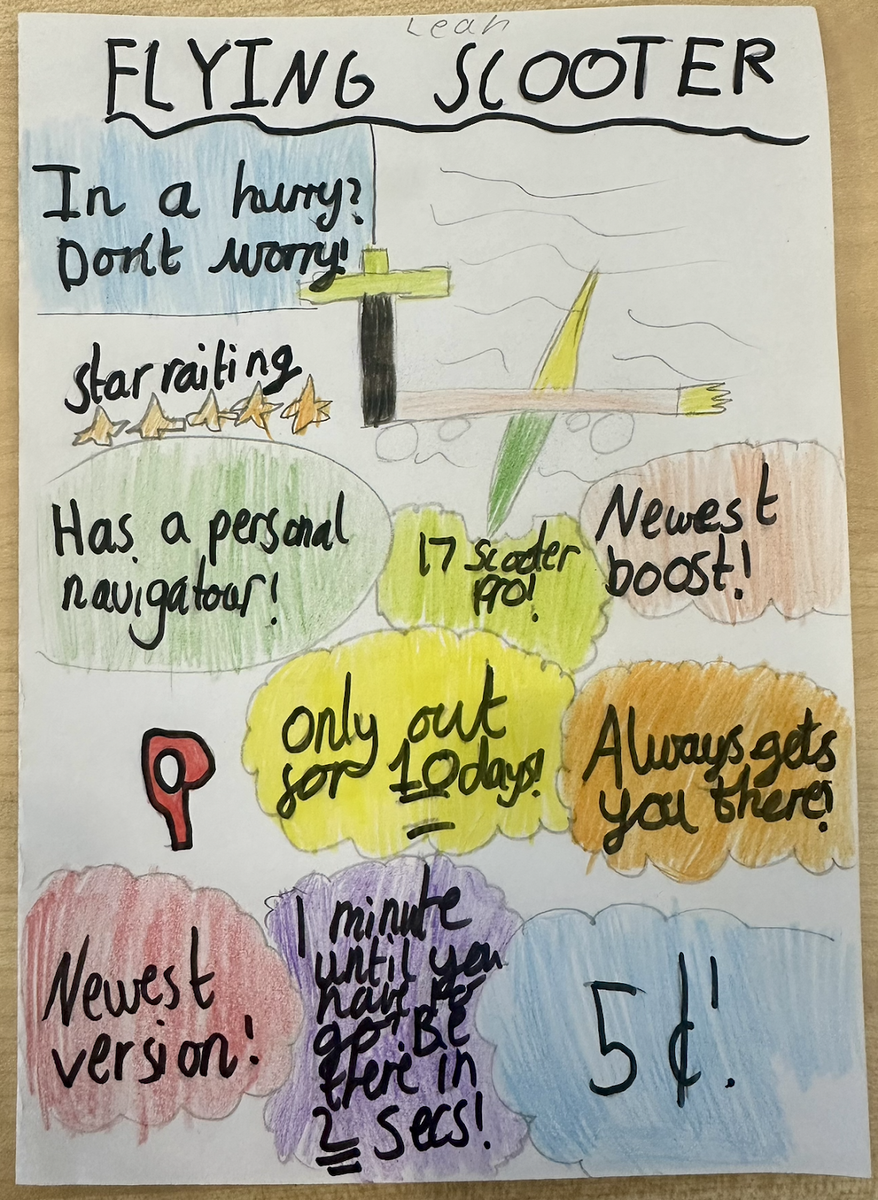 Leah
FLYING SCOOTER
In a hurry?
Don't worry!
star raiting
Has a personal
navigatour!
17 scooter
pro!
Newest
boost!
only out
for 10 days!
Always gets
you there!
Newest
version!
1 minute
until you
have to
go? Be
there in
2 secs!
5¢!